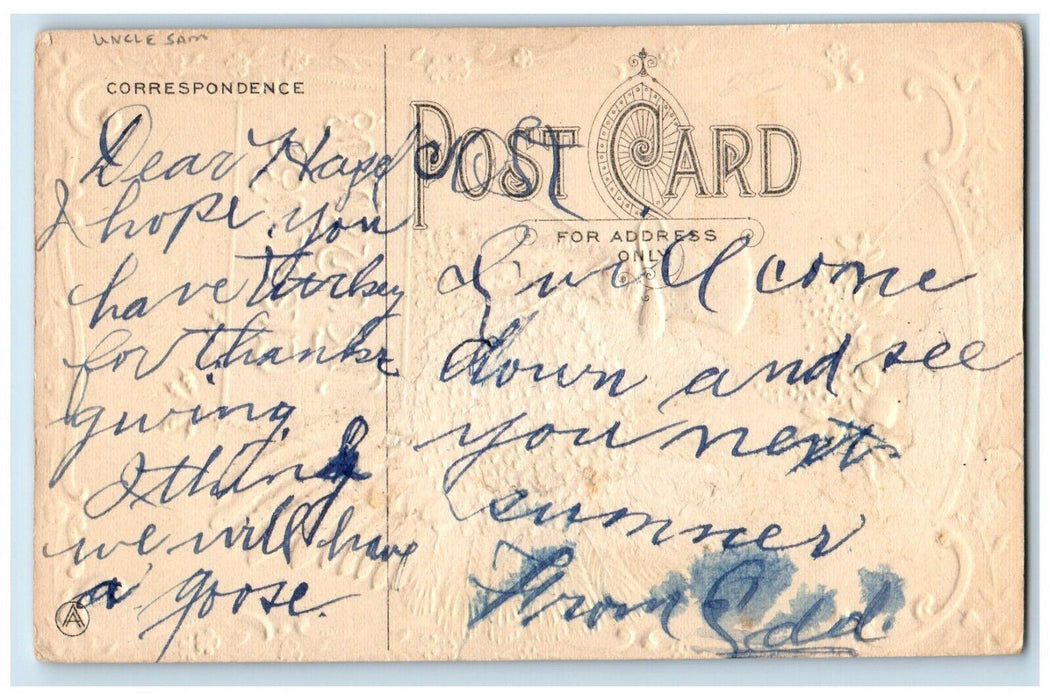 UNCLE SAM
CORRESPONDENCE
POST CARD
FOR ADDRESS
ONLY
Dear
I hope you
have Turkey
for thanks
giving.
I think
we will have
a goose.
I will come
down and see
you next
summer
From Edd.
AA